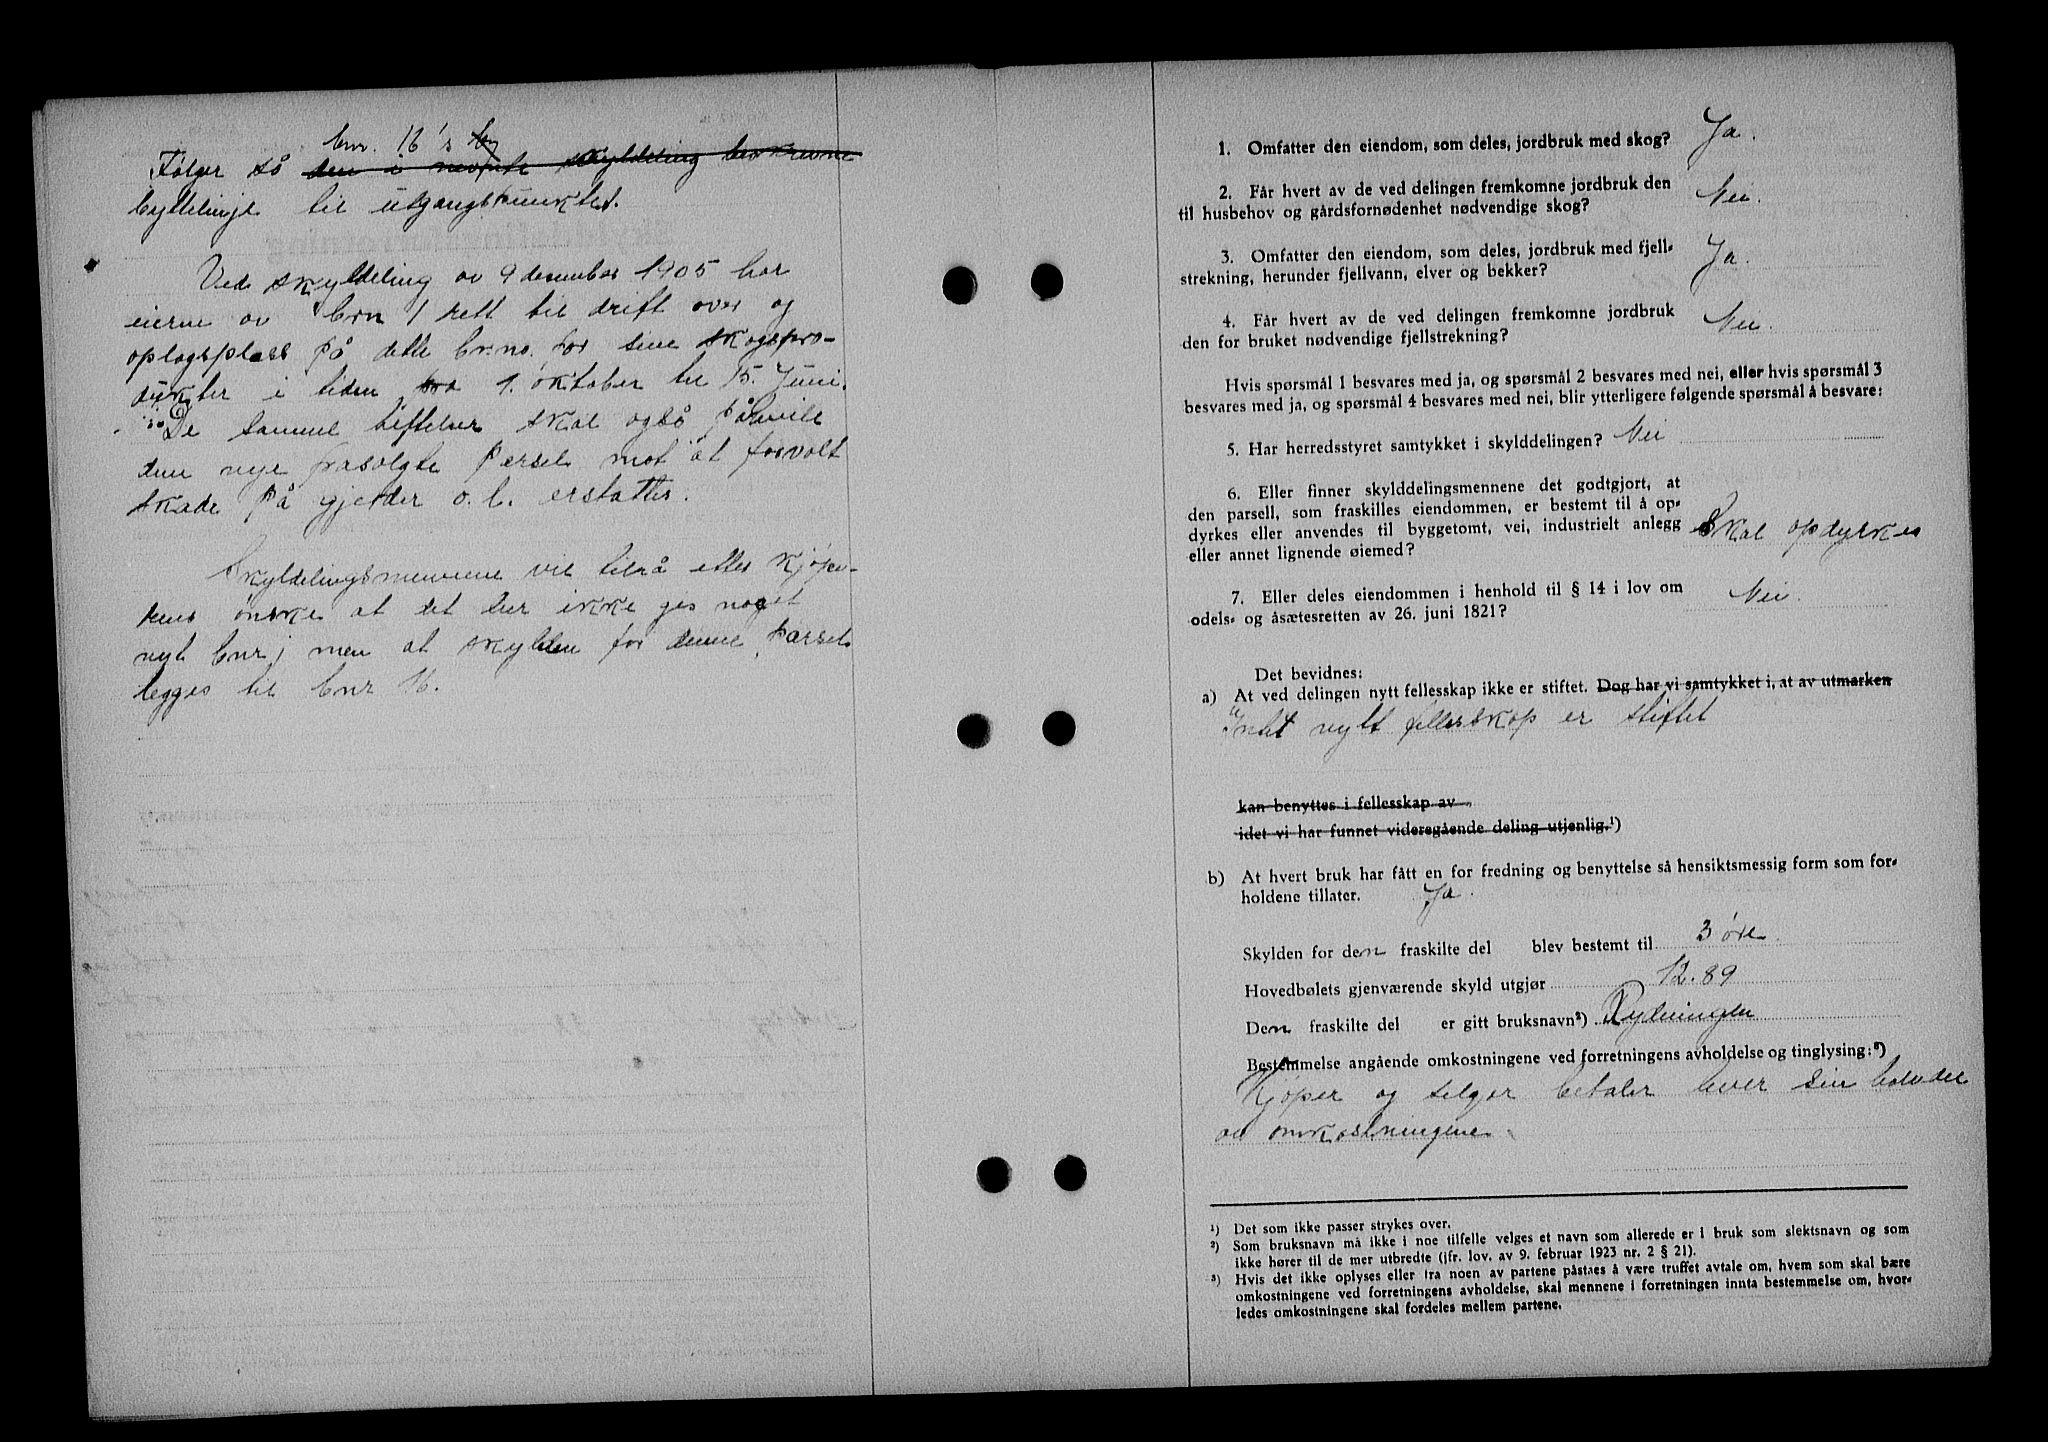 bnr. 16's
Følger så den i nevnte skyldeling beskrevne
byttelinje til utgangspunktet.
Ved skyldeling av 9 desember 1905 har
eierne av bnr 1 rett til drift over og
oplagsplass på dette br.no. for sine skogspro-
dukter i tiden fra 1. oktober til 15. Juni.
De samme heftelser skal også påhvile
den nye frasolgte parsel mot at forvolt
skade på gjerder o.l. erstattes.
Skyldelingsmennene vil tilrå etter kjøpe-
rens ønske at det her ikke ges noget
nyt bnr, men at skylden for denne parsel
legges til bnr 16.
1. Omfatter den eiendom, som deles, jordbruk med skog? Ja.
2. Får hvert av de ved delingen fremkomne jordbruk den
til husbehov og gårdsfornødenhet nødvendige skog? Nei.
3. Omfatter den eiendom, som deles, jordbruk med fjell-
strekning, herunder fjellvann, elver og bekker? Ja.
4. Får hvert av de ved delingen fremkomne jordbruk
den for bruket nødvendige fjellstrekning? Nei.
Hvis spørsmål 1 besvares med ja, og spørsmål 2 besvares med nei, eller hvis spørsmål 3
besvares med ja, og spørsmål 4 besvares med nei, blir ytterligere følgende spørsmål å besvare:
5. Har herredsstyret samtykket i skylddelingen? Nei
6. Eller finner skylddelingsmennene det godtgjort, at
den parsell, som fraskilles eiendommen, er bestemt til å op-
dyrkes eller anvendes til byggetomt, vei, industrielt anlegg
eller annet lignende øiemed? Skal opdyrkes
7. Eller deles eiendommen i henhold til § 14 i lov om
odels- og åsætesretten av 26. juni 1821? Nei.
Det bevidnes:
a) At ved delingen nytt fellesskap ikke er stiftet. Dog har vi samtykket i, at av utmarken
Intet nytt fellesskap er stiftet
kan benyttes i fellesskap av
idet vi har funnet videregående deling utjenlig.¹)
b) At hvert bruk har fått en for fredning og benyttelse så hensiktsmessig form som for-
holdene tillater. Ja.
Skylden for den fraskilte del blev bestemt til 3 øre.
Hovedbølets gjenværende skyld utgjør 12.89
Den fraskilte del er gitt bruksnavn²) Rydningen
Bestemmelse angående omkostningene ved forretningens avholdelse og tinglysing:³)
Kjøper og selger betaler hver sin halvdel
av omkostningene.
¹) Det som ikke passer strykes over.
²) Som bruksnavn må ikke i noe tilfelle velges et navn som allerede er i bruk som slektsnavn og som
ikke hører til de mer utbredte (jfr. lov. av 9. februar 1923 nr. 2 § 21).
³) Hvis det ikke oplyses eller fra noen av partene påstaes å være truffet avtale om, hvem som skal bære
omkostningene ved forretningens avholdelse, skal mennene i forretningen innta bestemmelse om, hvor-
ledes omkostningene skal fordeles mellem partene.